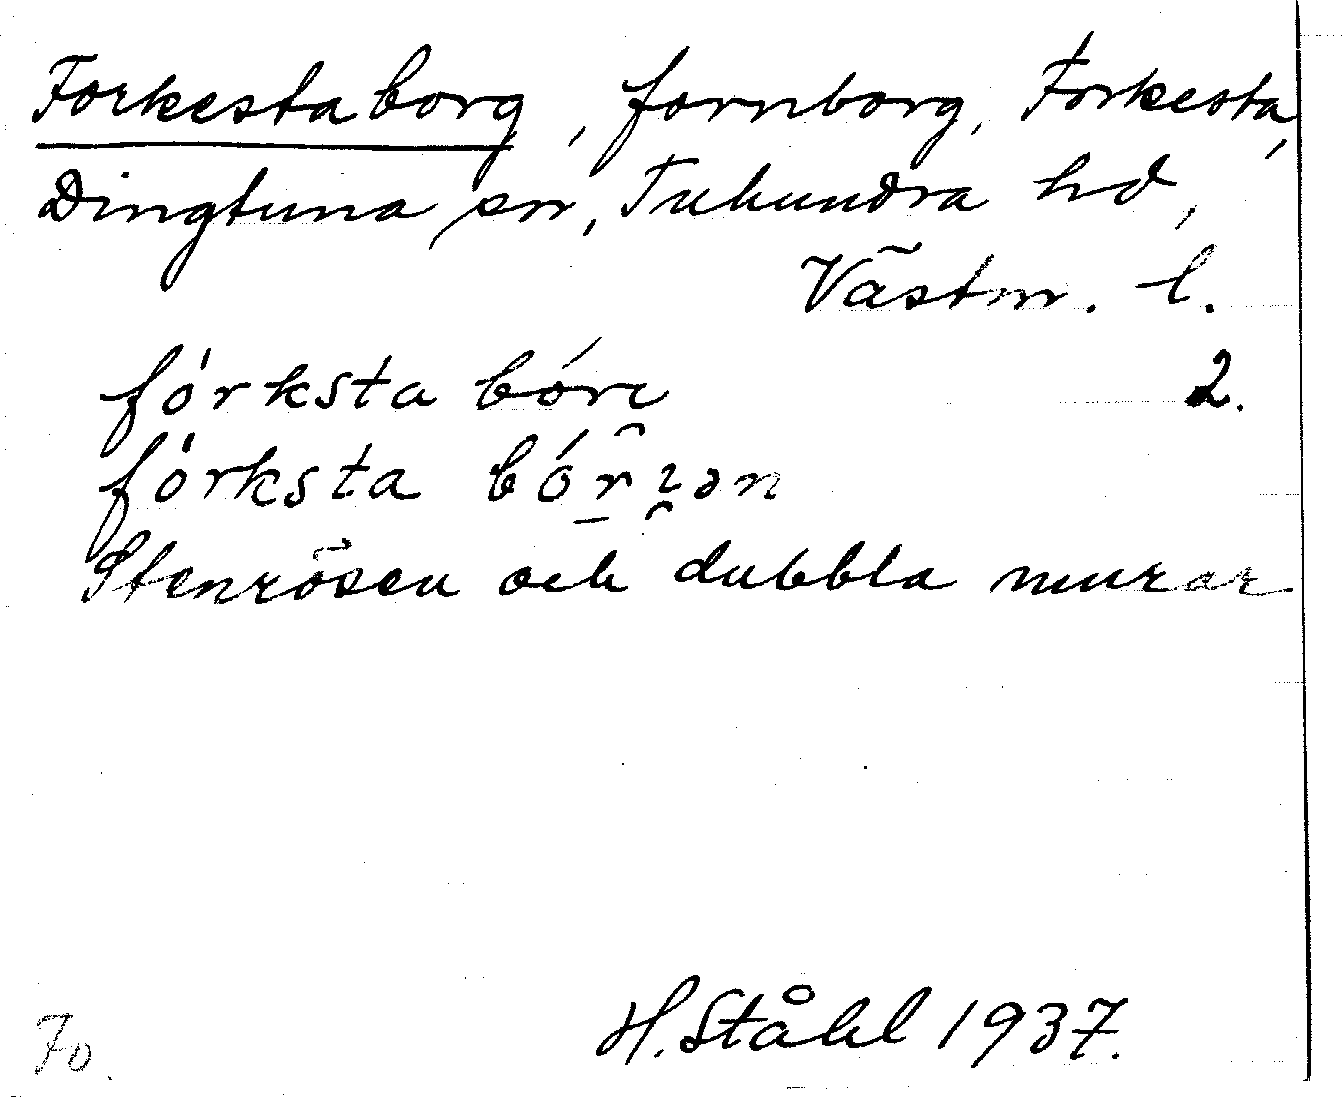 Forkestaborg, fornborg, Forkesta,
Dingtuna sn, Tuhundra hd,
Västm. l.
fórksta bórɩ̯ 2.
fórksta bórɩ̯ən
Stenrösen och dubbla murar
H. Ståhl 1937.
Fo.